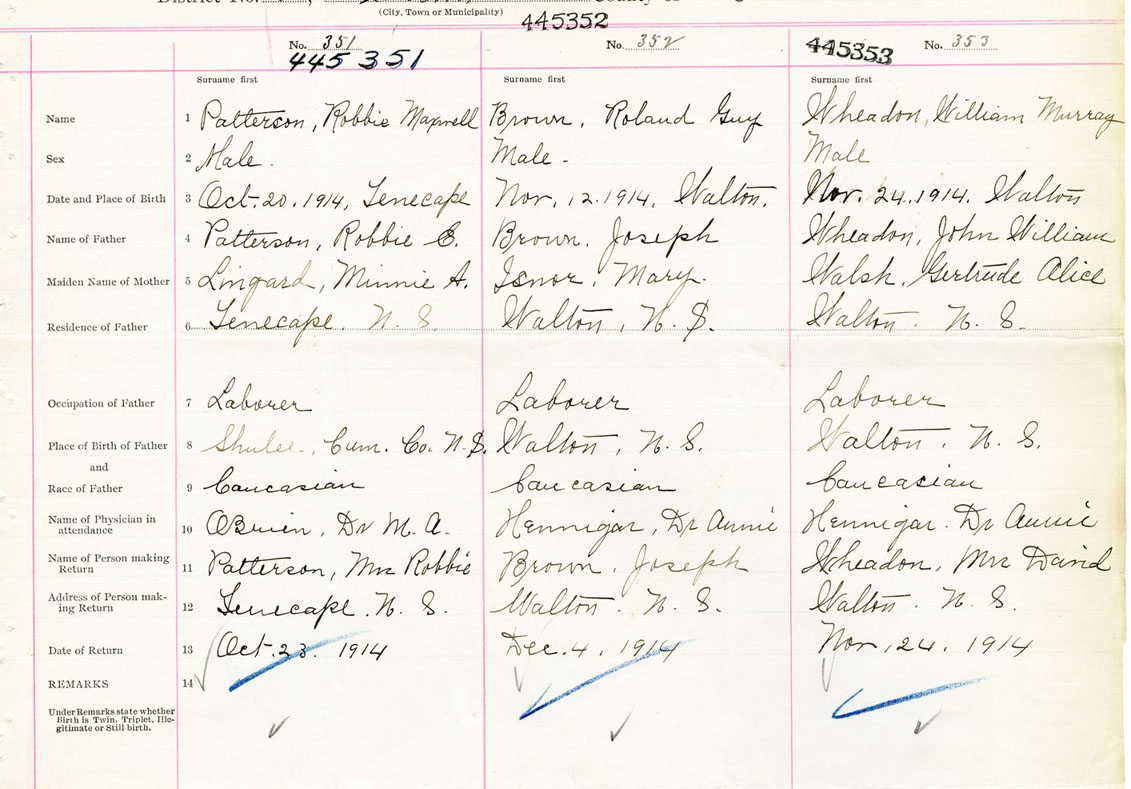 District No.
County of
(City, Town or Municipality)
445352
No. 351 No. 352 445353 No. 353
445 351
Surname first Surname first Surname first
Name 1 Patterson, Robbie Maxwell Brown, Roland Guy Wheadon, William Murray
Sex 2 Male. Male - Male
Date and Place of Birth 3 Oct. 20. 1914, Tenecape Nov, 12. 1914, Walton. Nov. 24. 1914, Walton
Name of Father 4 Patterson, Robbie E. Brown, Joseph Wheadon, John William
Maiden Name of Mother 5 Lingard, Minnie A. Isnor, Mary. Walsh, Gertrude Alice
Residence of Father 6 Tenecape, N. S. Walton, N. S. Walton. N. S.
Occupation of Father 7 Laborer Laborer Laborer
Place of Birth of Father 8 Shulee, Cum. Co. N. S. Walton, N. S. Walton, N. S.
and
Race of Father 9 Caucasian Caucasian Caucasian
Name of Physician in
attendance 10 OBrien, Dr M. A. Hennigar, Dr Annie Hennigar. Dr Annie
Name of Person making
Return 11 Patterson, Mrs Robbie Brown, Joseph Wheadon, Mrs David
Address of Person mak-
ing Return 12 Tenecape. N. S. Walton. N. S. Walton. N. S.
Date of Return 13 Oct. 23. 1914 Dec. 4, 1914 Nov, 24. 1914
REMARKS 14
Under Remarks state whether
Birth is Twin, Triplet, Ille-
gitimate or Still-birth.